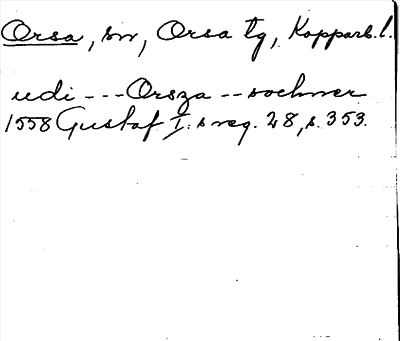 Orsa, sn, Orsa tg, Kopparb. l.
udi --- Orsza -- sochner
1558 Gustaf I:s reg. 28, s. 353.